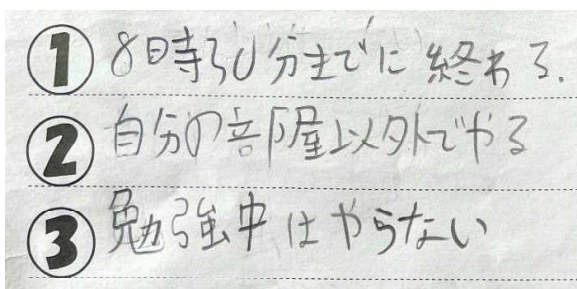 ① 8時30分までに終わる.
② 自分の部屋以外でやる
③ 勉強中はやらない